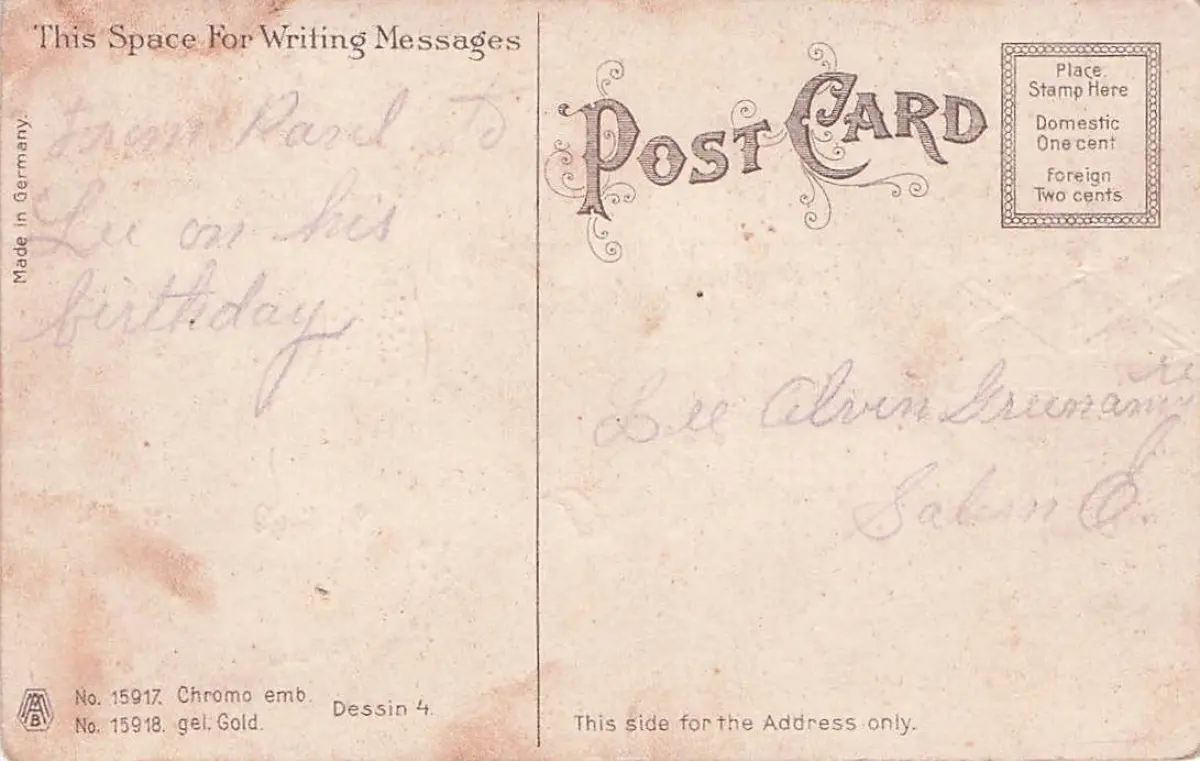 This Space For Writing Messages
Made in Germany.
From Paul To
Lee on his
birthday
No. 15917. Chromo emb.
No. 15918. gel. Gold.
Dessin 4.
POST CARD
Place
Stamp Here
Domestic
One cent
Foreign
Two cents
Lee Alvin
Salem O.
This side for the Address only.